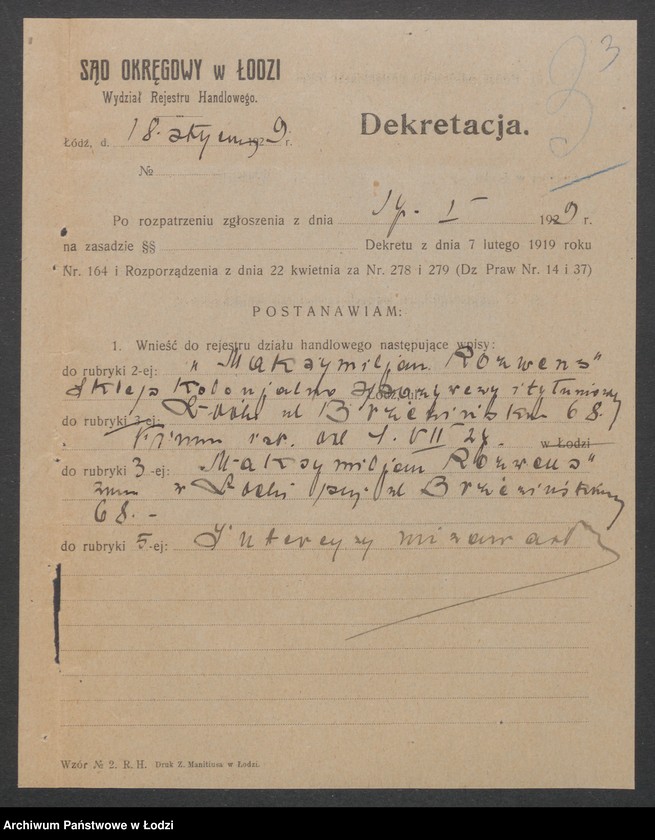 3
SĄD OKRĘGOWY w ŁODZI
Wydział Rejestru Handlowego.
Dekretacja.
Łódź, d. 18. stycznia 1929 r.
№
Po rozpatrzeniu zgłoszenia z dnia 17. I 1929 r.
na zasadzie §§ Dekretu z dnia 7 lutego 1919 roku
Nr. 164 i Rozporządzenia z dnia 22 kwietnia za Nr. 278 i 279 (Dz Praw Nr. 14 i 37)
POSTANAWIAM:
1. Wnieść do rejestru działu handlowego następujące wpisy:
do rubryki 2-ej: „Maksymiljan Rozwens"
Sklep kolonjalno spożywczy i tytuniowy
do rubryki 3-ej Łodzi ul Brzezińska 68.
Firma ist. od 1. VII 27. w Łodzi
do rubryki 3-ej: Maksymiljan Rozwens"
zam w Łodzi przy ul Brzezińskiej
68. -
do rubryki 5-ej: Intercyzy nie zawarł
Wzór № 2. R. H. Druk Z. Manitiusa w Łodzi.
Archiwum Państwowe w Łodzi